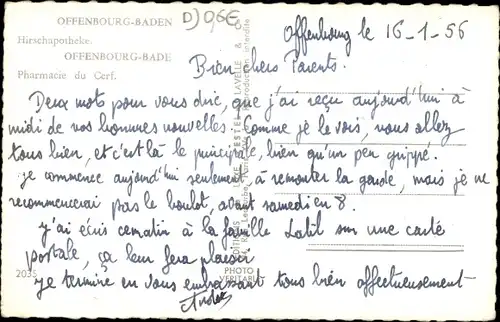 OFFENBOURG-BADEN
Hirschapotheke.
OFFENBOURG-BADE
Pharmacie du Cerf.
D) 06E
Offenbourg le 16-1-56
Bien chers Parents.
Deux mots pour vous dire, que j'ai reçu aujourd'hui à
midi de vos bonnes nouvelles. Comme je le vois, vous allez
tous bien, et c'est là le principale, bien qu'un peu grippé.
je commence aujourd'hui seulement, à remonter la garde, mais je ne
recommencerai pas le boulot, avant samedi en 8.
j'ai écris ce matin à la famille Latil sur une carte
postale, ça leur fera plaisir
je termine en vous embrassant tous bien affectueusement
2035
PHOTO
VÉRITABLE